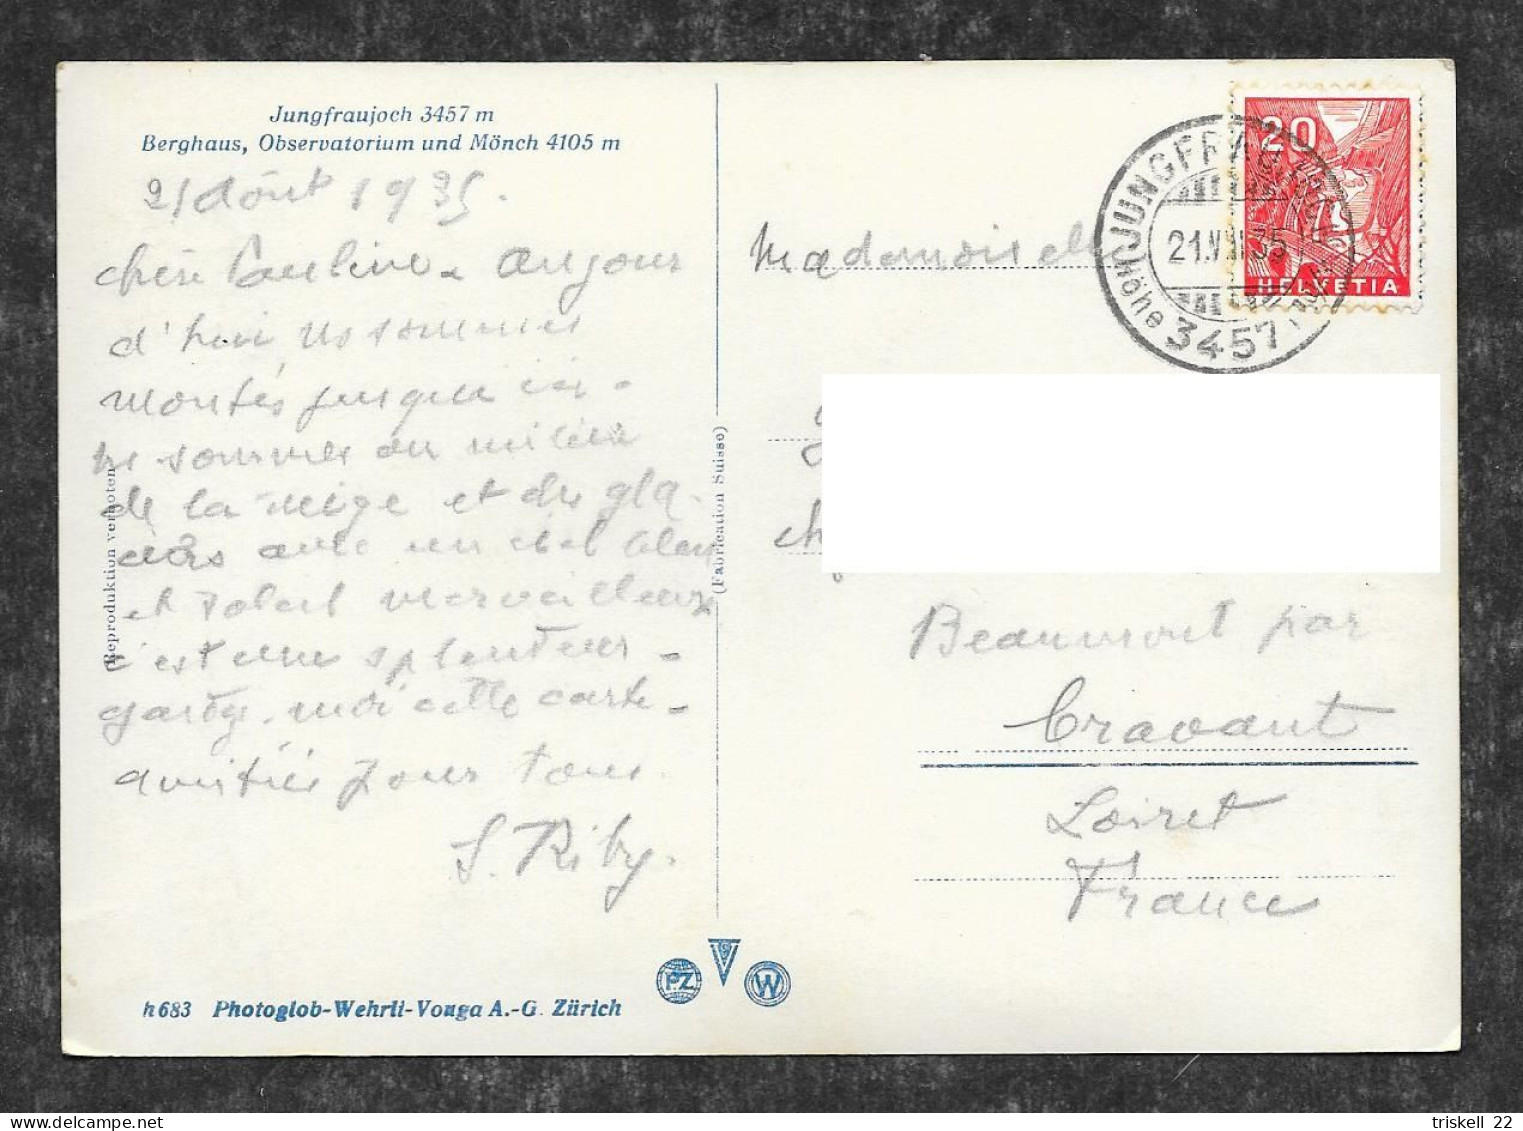 Jungfraujoch 3457 m
Berghaus, Observatorium und Mönch 4105 m
21 Août 1935.
chère Pauline. aujour
d'hui ns sommes
montés jusqu'ici -
ns sommes au milieu
de la neige et des gla-
ciers avec un ciel bleu
et soleil merveilleux
c'est une splendeur -
gardez-moi cette carte -
amitiés pour tous
S. Riby.
Reproduktion verboten
(Fabrication Suisse)
h 683 Photoglob-Wehrli-Vouga A.-G. Zürich
P.Z
W
20
HELVETIA
JUNGFRAUJOCH
21.VIII.35
Höhe 3457
Mademoiselle
Beaumont par
Cravant
Loiret
France
triskell 22